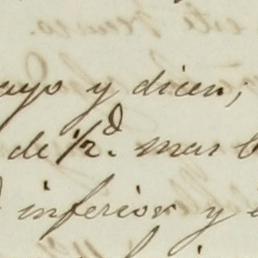 ayo y dicen;
de 1/2 d. mas
inferior y